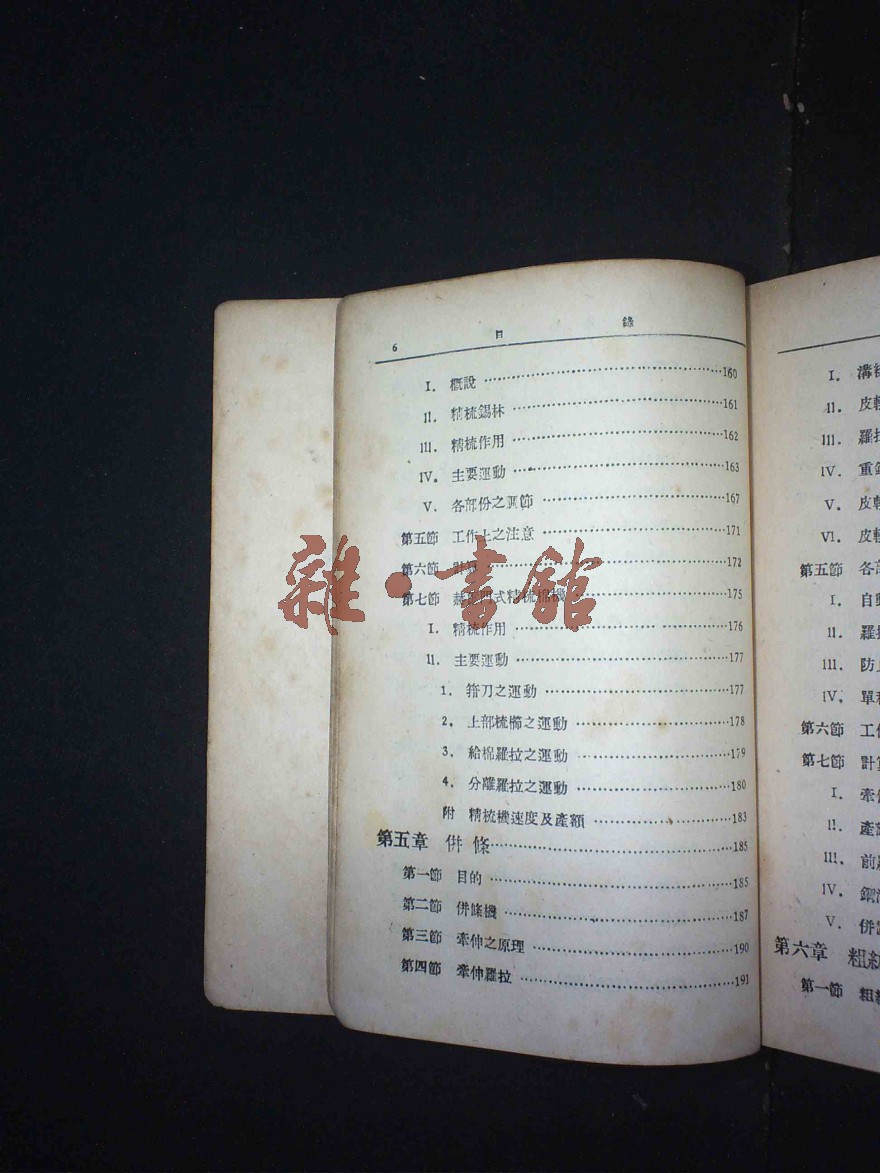 6 目 錄
I. 概說 160
II. 精梳錫林 161
III. 精梳作用 162
IV. 主要運動 163
V. 各部份之調節 167
第五節 工作上之注意 171
第六節 計 172
第七節 式精梳棉機 175
I. 精梳作用 176
II. 主要運動 177
1. 箝刀之運動 177
2. 上部梳櫛之運動 178
3. 給棉羅拉之運動 179
4. 分離羅拉之運動 180
附 精梳機速度及產額 183
第五章 併條 185
第一節 目的 185
第二節 併條機 187
第三節 牽伸之原理 190
第四節 牽伸羅拉 191
雜·書館
I. 溝
II. 皮
III. 羅
IV. 重
V. 皮
VI. 皮
第五節 各
I. 自
II. 羅
III. 防
IV. 單
第六節 工
第七節 計
I. 牽
II. 產
III. 前
IV.
V. 併
第六章 粗
第一節 粗